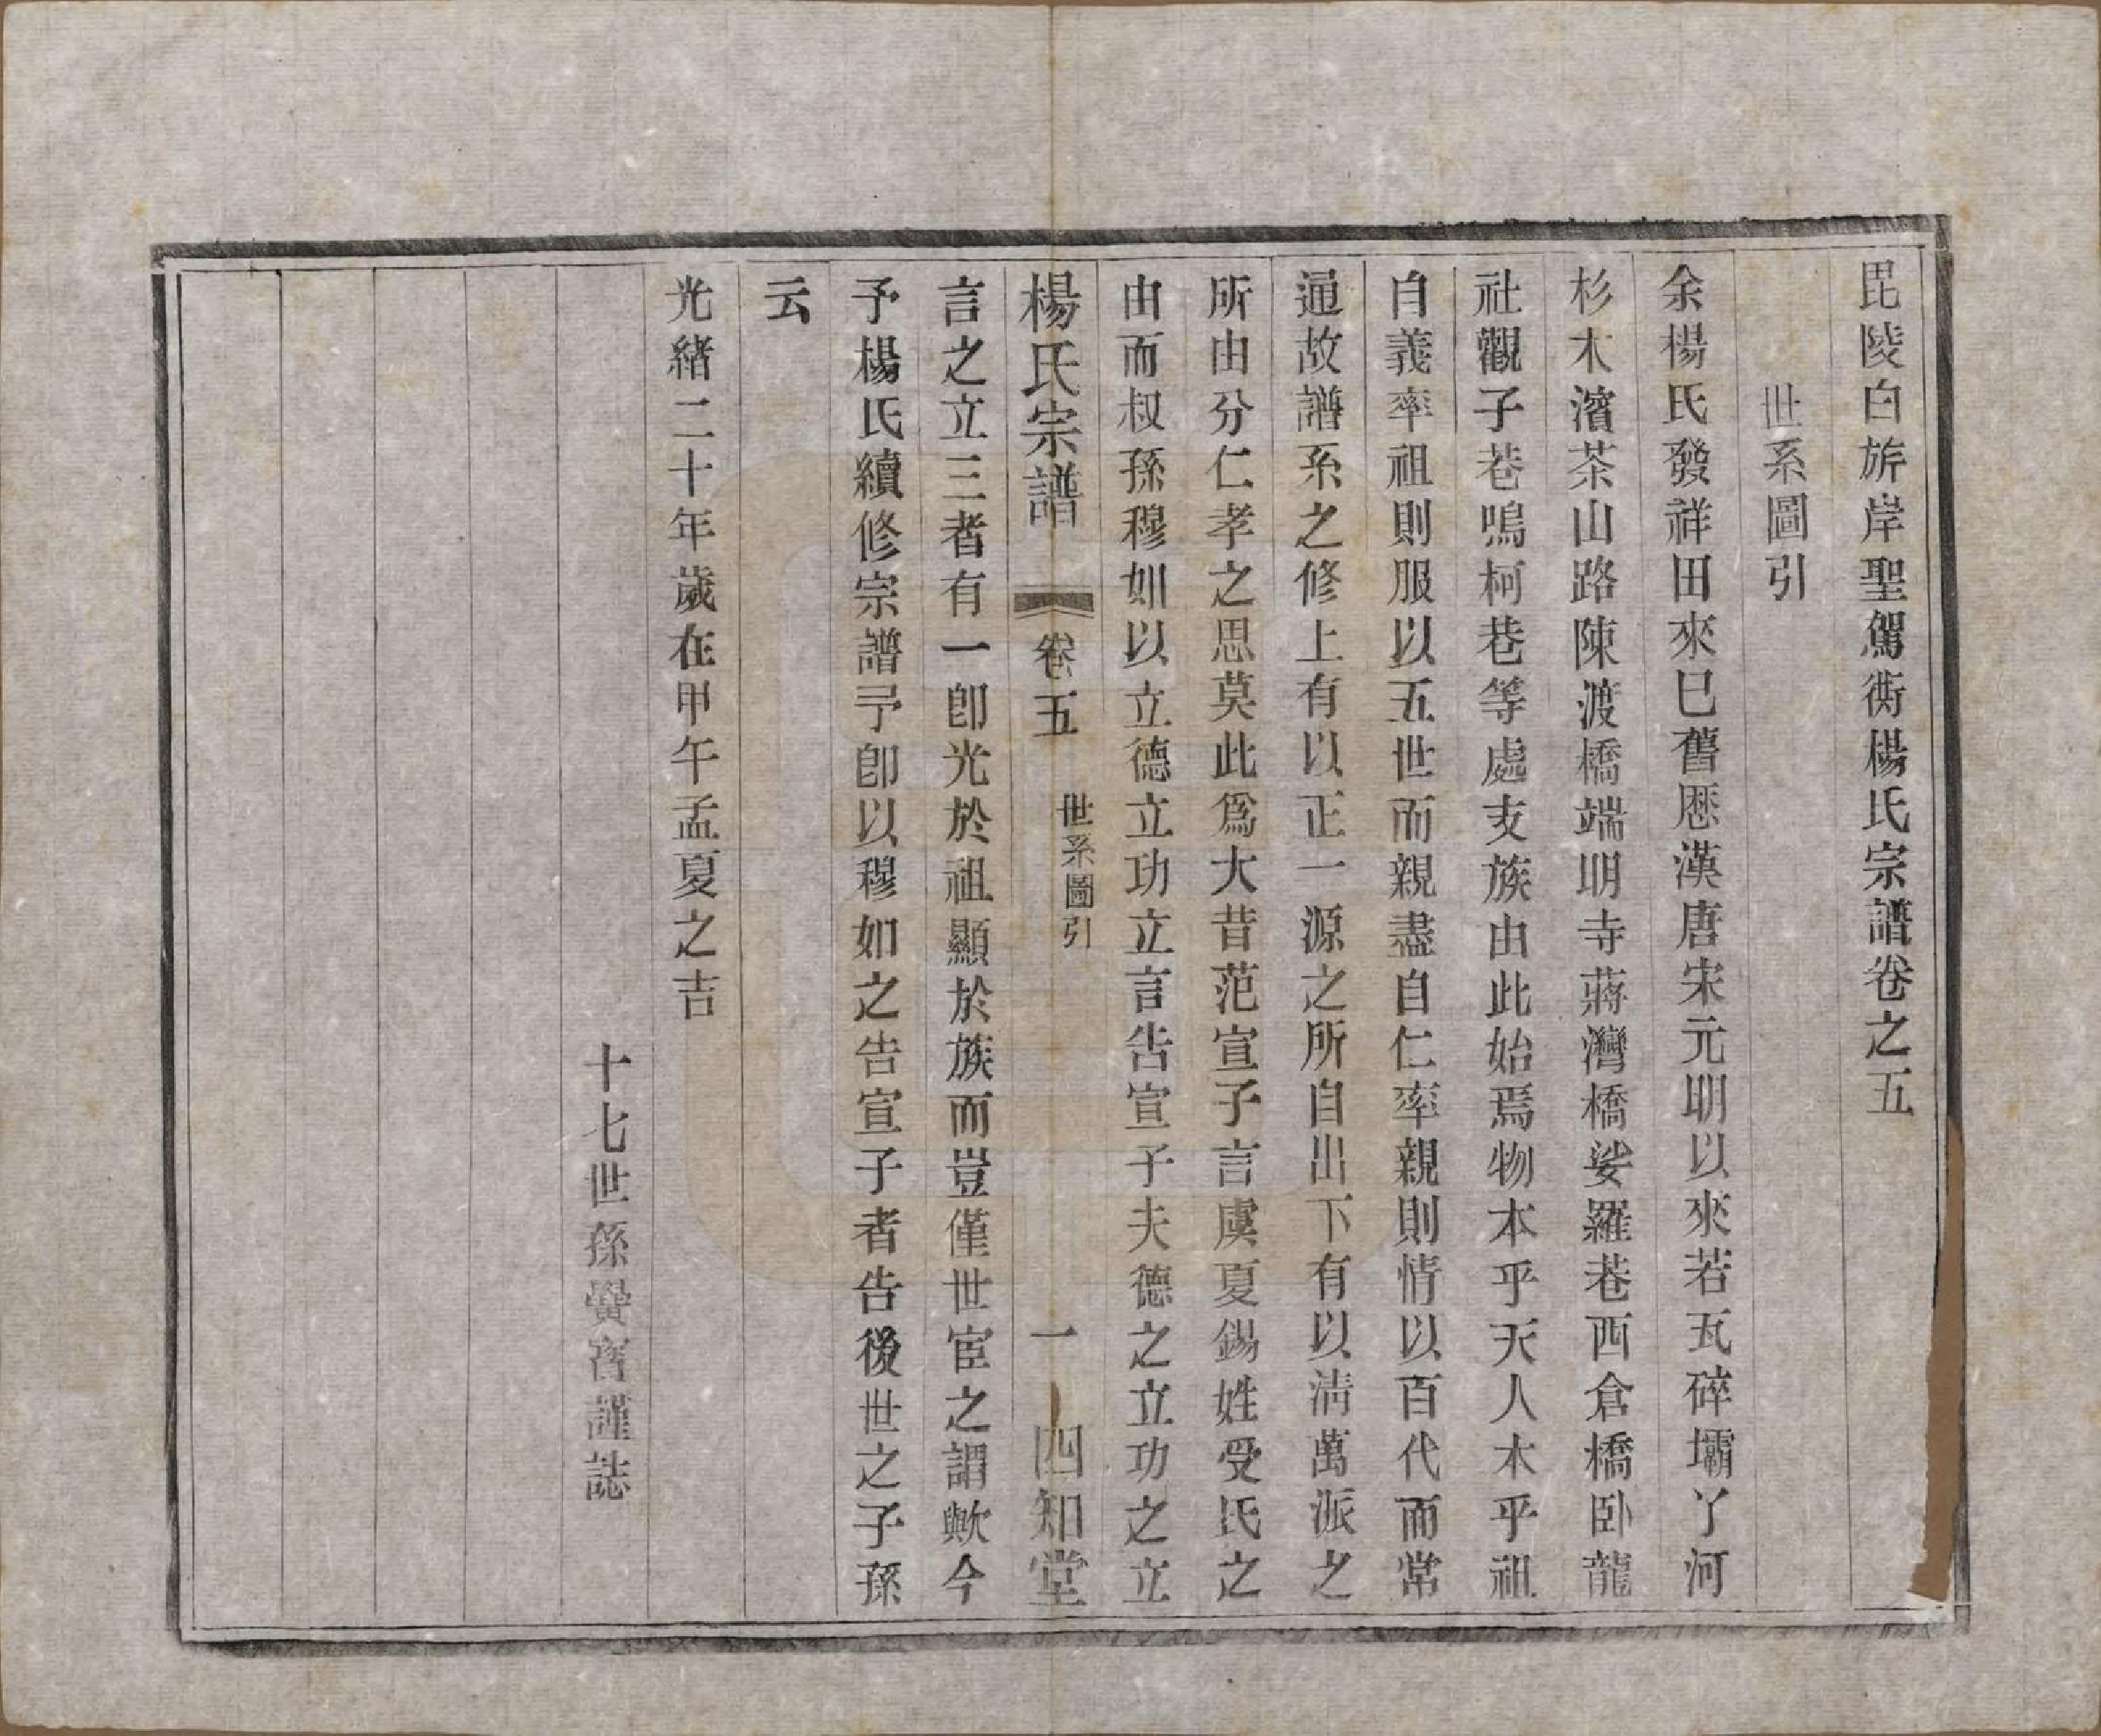 毘陵白旂岸聖駕衖楊氏宗譜卷之五
世系圖引
余楊氏發祥田來已舊歷漢唐宋元明以來若瓦碎壩丫河
杉木濱茶山路陳渡橋端明寺蔣灣橋娑羅巷西倉橋臥龍
社觀子巷鳴柯巷等處支族由此始焉物本乎天人本乎祖
自義率祖則服以五世而親盡自仁率親則情以百代而常
通故譜系之修上有以正一源之所自出下有以淸萬派之
所由分仁孝之思莫此爲大昔范宣子言虞夏錫姓受氏之
由而叔孫穆如以立德立功立言告宣子夫德之立功之立
楊氏宗譜 卷五 世系圖引 一 四知堂
言之立三者有一卽光於祖顯於族而豈僅世宦之謂歟今
予楊氏續修宗譜予卽以穆如之告宣子者告後世之子孫
云
光緒二十年歲在甲午孟夏之吉
十七世孫黌宮謹誌